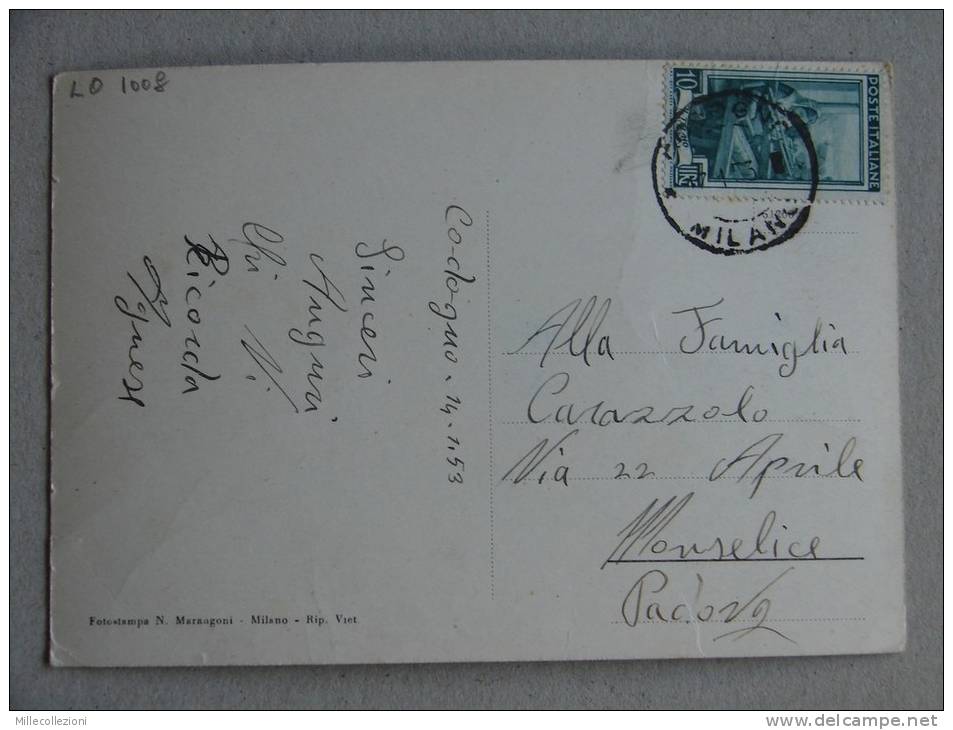 LO 1008
Codogno. 14.1.53
Sinceri
Auguri
Chi Vi
Ricorda
Agnese
POSTE ITALIANE
LIRE 10
MILANO
Alla Famiglia
Carazzolo
Via 22 Aprile
Monselice
Padova
Fotostampa N. Marangoni - Milano - Rip. Viet.
Millecollezioni
www.delcampe.net